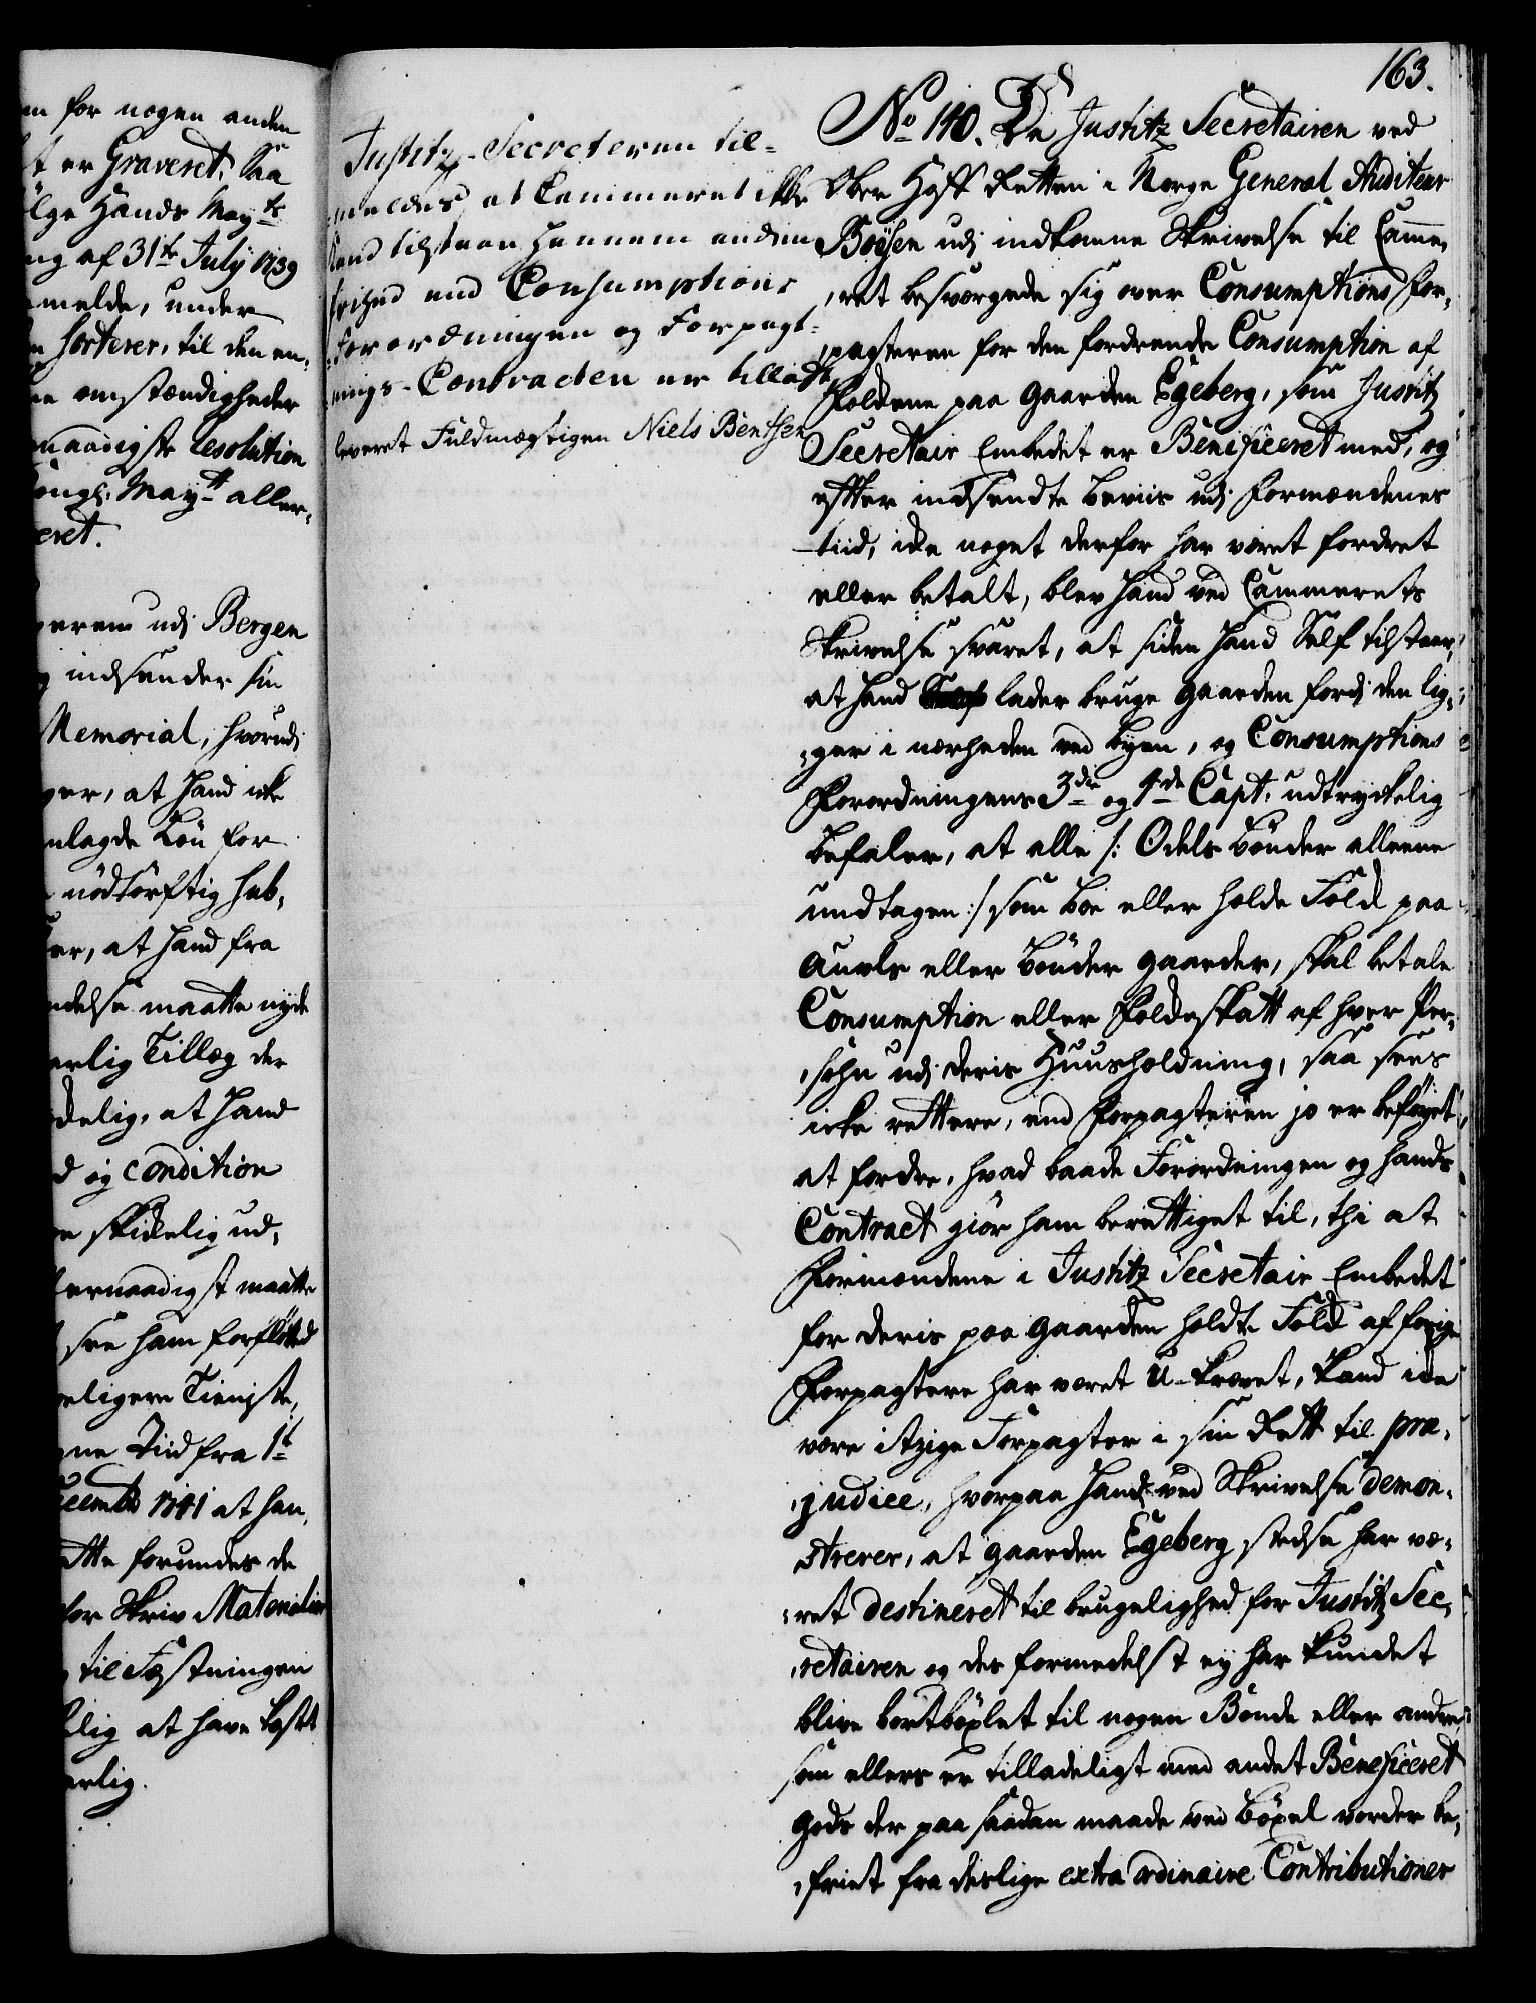 163.
m for nogen anden
t er Graveret, Saa
ølge Hands May.ts
ng af 31te July 1739
melde, under
Sorterer, til den en¬
omstændigheder
naadigste Resolution
ongl: May.tt aller¬
eret.
udj Bergen
indsender sin
Memorial, hvorudj
ger, at Hand icke
nlagde Løn for
nødtørftig sub¬
er, at Hand fra
ndelse maatte nyde
erlig Tillæg der
delig, at Hand
d og condition
skickelig ud¬
ernaadigst maatte
see ham forflötted
eligere Tieniste,
Tiid fra 1t
cembr 1741 at han
atte forundes de
for Skriv Materialier
til Fæstningen
lig at have kost
erlig.
Justitz-Secreteren til¬
meldes, at Cammeret ikke
kand tilstaae hannem anden
friehed end Consumptions
Forordningen og Forpagt¬
nings-Contracten er tilladt
leveret Fuldmægtigen Niels Bentsen
No 140. Da Justitz Secretairen ved
Ober Hoff Retten i Norge General Auditeur
Boysen udj indkomne Skrivelse til Camme¬
ret besvergede sig over Consumptions For¬
pagteren for den fordrende Consumption af
Foldene paa Gaarden Egeberg, som Justitz
Secretair Embedet er Beneficeret med, og
efter indsendte beviis udj Formændenes
tiid, icke noget derfor har været fordret
eller betalt, blev Hand ved Cammerets
Skrivelse svaret, at siden Hand Self tilstaar,
at Hand lader bruge Gaarden fordj den lig¬
ger i nærheden ved byen, og Consumptions
Forordningens 3die og 4de Capt: udtryckelig
befaler, at alle /: Odels bönder alleene
undtagen :/ som boe eller holde Fold paa
Auvls eller bönder gaarder, skal betale
Consumption eller Foldeskatt af hver Per¬
sohn udj deris Huusholdning, saa sees
icke rettere, end Forpagteren jo er beföyet
at fordre, hvad baade Forordningen og Hands
Contract giör ham berettiget til, thi at
Formændene i Justitz Secretair Embedet
for deris paa Gaarden holdte Fold af forige
Forpagtere har været U-krævet, kand icke
være itzige Forpagter i sin Rett til præ¬
judice, hvorpaa Hand ved Skrivelse demon¬
strerer, at Gaarden Egeberg stedse har væ¬
ret destineret til brugelighed for Justitz Sec¬
retairen og des formedelst ey har kundet
blive bortböxlet til nogen Bonde eller andre
som ellers er tilladeligt med andet Beneficeret
Gods der paa saadan maade ved Böxel vorder be¬
friet fra deslige extra ordinaire Contributioner